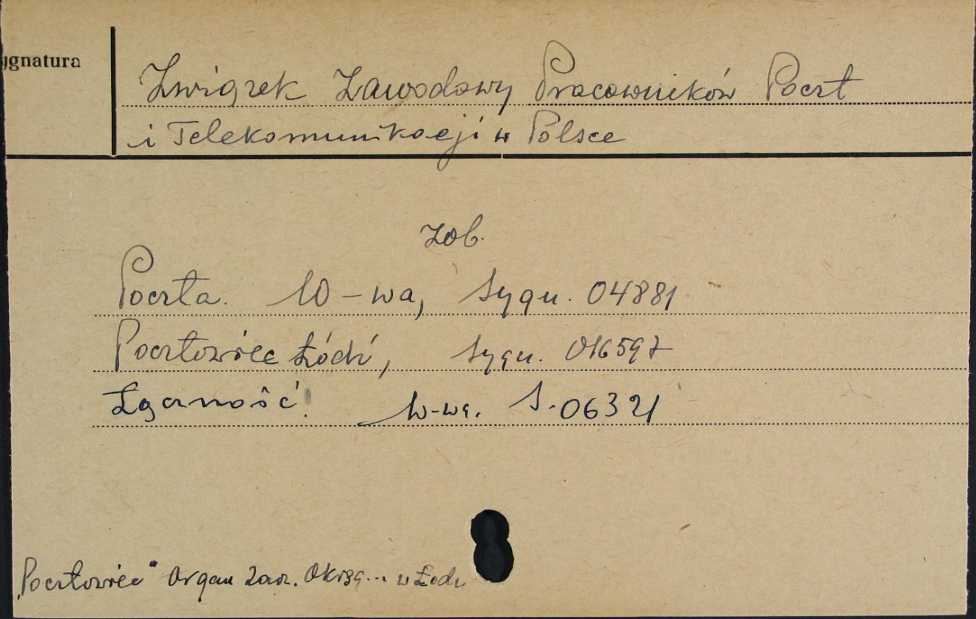 ygnatura
Związek Zawodowy Pracowników Poczt
i Telekomunikacji w Polsce
Zob.
Poczta. W-wa, sygn. 04881
Pocztowiec Łódź, sygn. 016597
Łączność. W-wa. S. 06321
"Pocztowiec" Organ Zarz. Okręg... w Łodzi